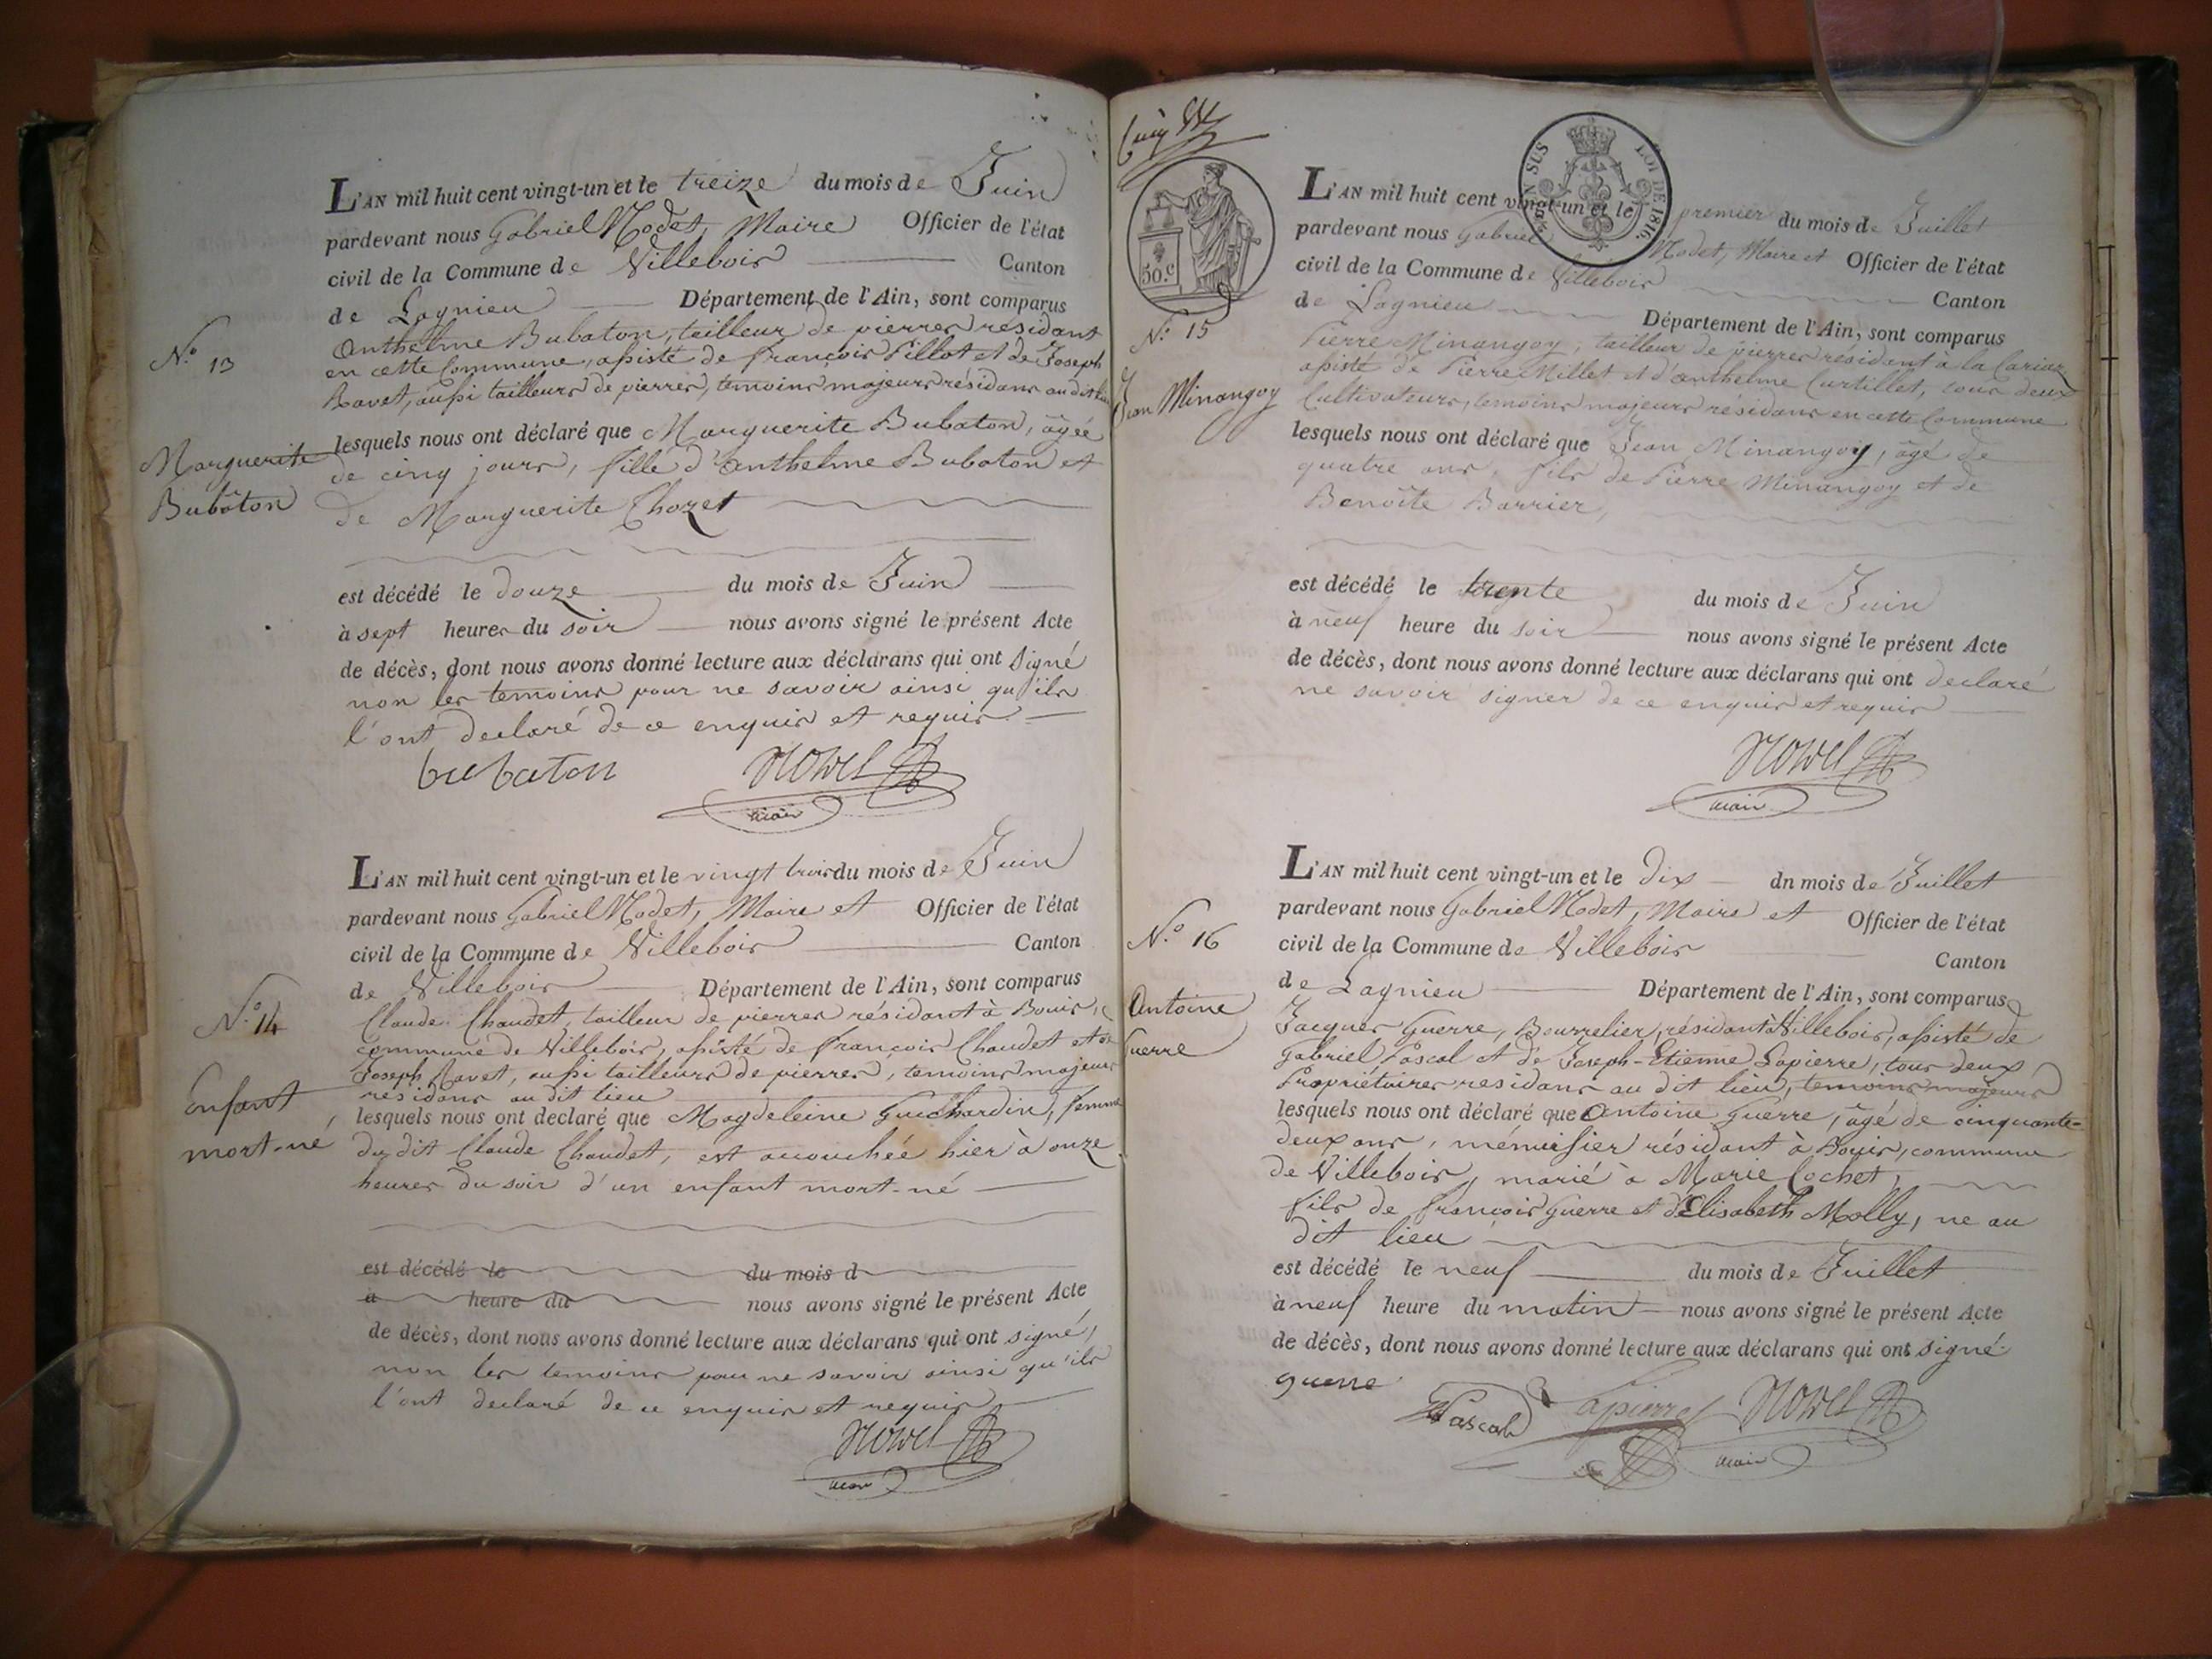 L'AN mil huit cent vingt-un et le treize du mois de Juin
pardevant nous Gabriel Nodet, Maire Officier de l'état
civil de la Commune de Villebois Canton
de Lagnieu Département de l'Ain, sont comparus
Anthelme Bubaton, tailleur de pierres résidant
en cette Commune, assisté de françois Pillot et de Joseph
Ravet, aussi tailleurs de pierres, temoins majeurs résidans audit lieu
lesquels nous ont déclaré que Marguerite Bubaton, âgée
de cinq jours, fille d'Anthelme Bubaton et
de Marguerite Chozet
est décédé le douze du mois de Juin
à sept heures du soir nous avons signé le présent Acte
de décès, dont nous avons donné lecture aux déclarans qui ont signé
non les temoins pour ne savoir ainsi qu'ils
l'ont declaré de ce enquis et requis
bubaton
maire
N.o 13
Marguerite
Bubaton
L'AN mil huit cent vingt-un et le vingt trois du mois de Juin
pardevant nous Gabriel Nodet, Maire et Officier de l'état
civil de la Commune de Villebois Canton
de Villebois Département de l'Ain, sont comparus
Claude Chaudet, tailleur de pierres résidant à Bouis,
commune de Villebois, assisté de françois Chaudet et de
Joseph Ravet, aussi tailleurs de pierres, temoins majeurs
résidans au dit lieu
lesquels nous ont declaré que Magdeleine Guichardin, femme
du dit Claude Chaudet, est accouchée hier à onze
heures du soir d'un enfant mort-né
est décédé le du mois d
à heure du nous avons signé le présent Acte
de décès, dont nous avons donné lecture aux déclarans qui ont signé,
non les temoins pour ne savoir ainsi qu'ils
l'ont declaré de ce enquis et requis
maire
N.o 14
Enfant
mort-né
50.c
TIMBRE SUS LOI DE 1816.
L'AN mil huit cent vingt-un et le premier du mois de Juillet
pardevant nous Gabriel Nodet, Maire et Officier de l'état
civil de la Commune de Villebois Canton
de Lagnieu Département de l'Ain, sont comparus
Pierre Minangoy, tailleur de pierres résidant à la
assisté de Pierre Millet et d'Anthelme Curtillet, tous deux
Cultivateurs, temoins majeurs résidans en cette Commune
lesquels nous ont déclaré que Jean Minangoy, âgé de
quatre ans, fils de Pierre Minangoy et de
Benoîte Barrier,
est décédé le trente du mois de Juin
à neuf heure du soir nous avons signé le présent Acte
de décès, dont nous avons donné lecture aux déclarans qui ont declaré
ne savoir signer de ce enquis et requis
maire
N.o 15
Jean Minangoy
L'AN mil huit cent vingt-un et le Dix dn mois de Juillet
pardevant nous Gabriel Nodet, Maire et Officier de l'état
civil de la Commune de Villebois Canton
de Lagnieu Département de l'Ain, sont comparus
Jacques Guerre, Bourrelier, résidant à Villebois, assisté de
Gabriel Pascal et de Joseph-Etienne Lapierre, tous deux
Propriétaires residans au dit lieu, temoins majeurs
lesquels nous ont déclaré que Antoine Guerre, âgé de cinquante-
deux ans, ménuisier résidant à Bouis, commune
de Villebois, marié à Marie Cochet,
fils de françois Guerre et d'Elisabeth Molly, ne au
dit lieu
est décédé le neuf du mois de Juillet
à neuf heure du matin nous avons signé le présent Acte
de décès, dont nous avons donné lecture aux déclarans qui ont signé
guerre
Pascal Lapierre
maire
N.o 16
Antoine
Guerre